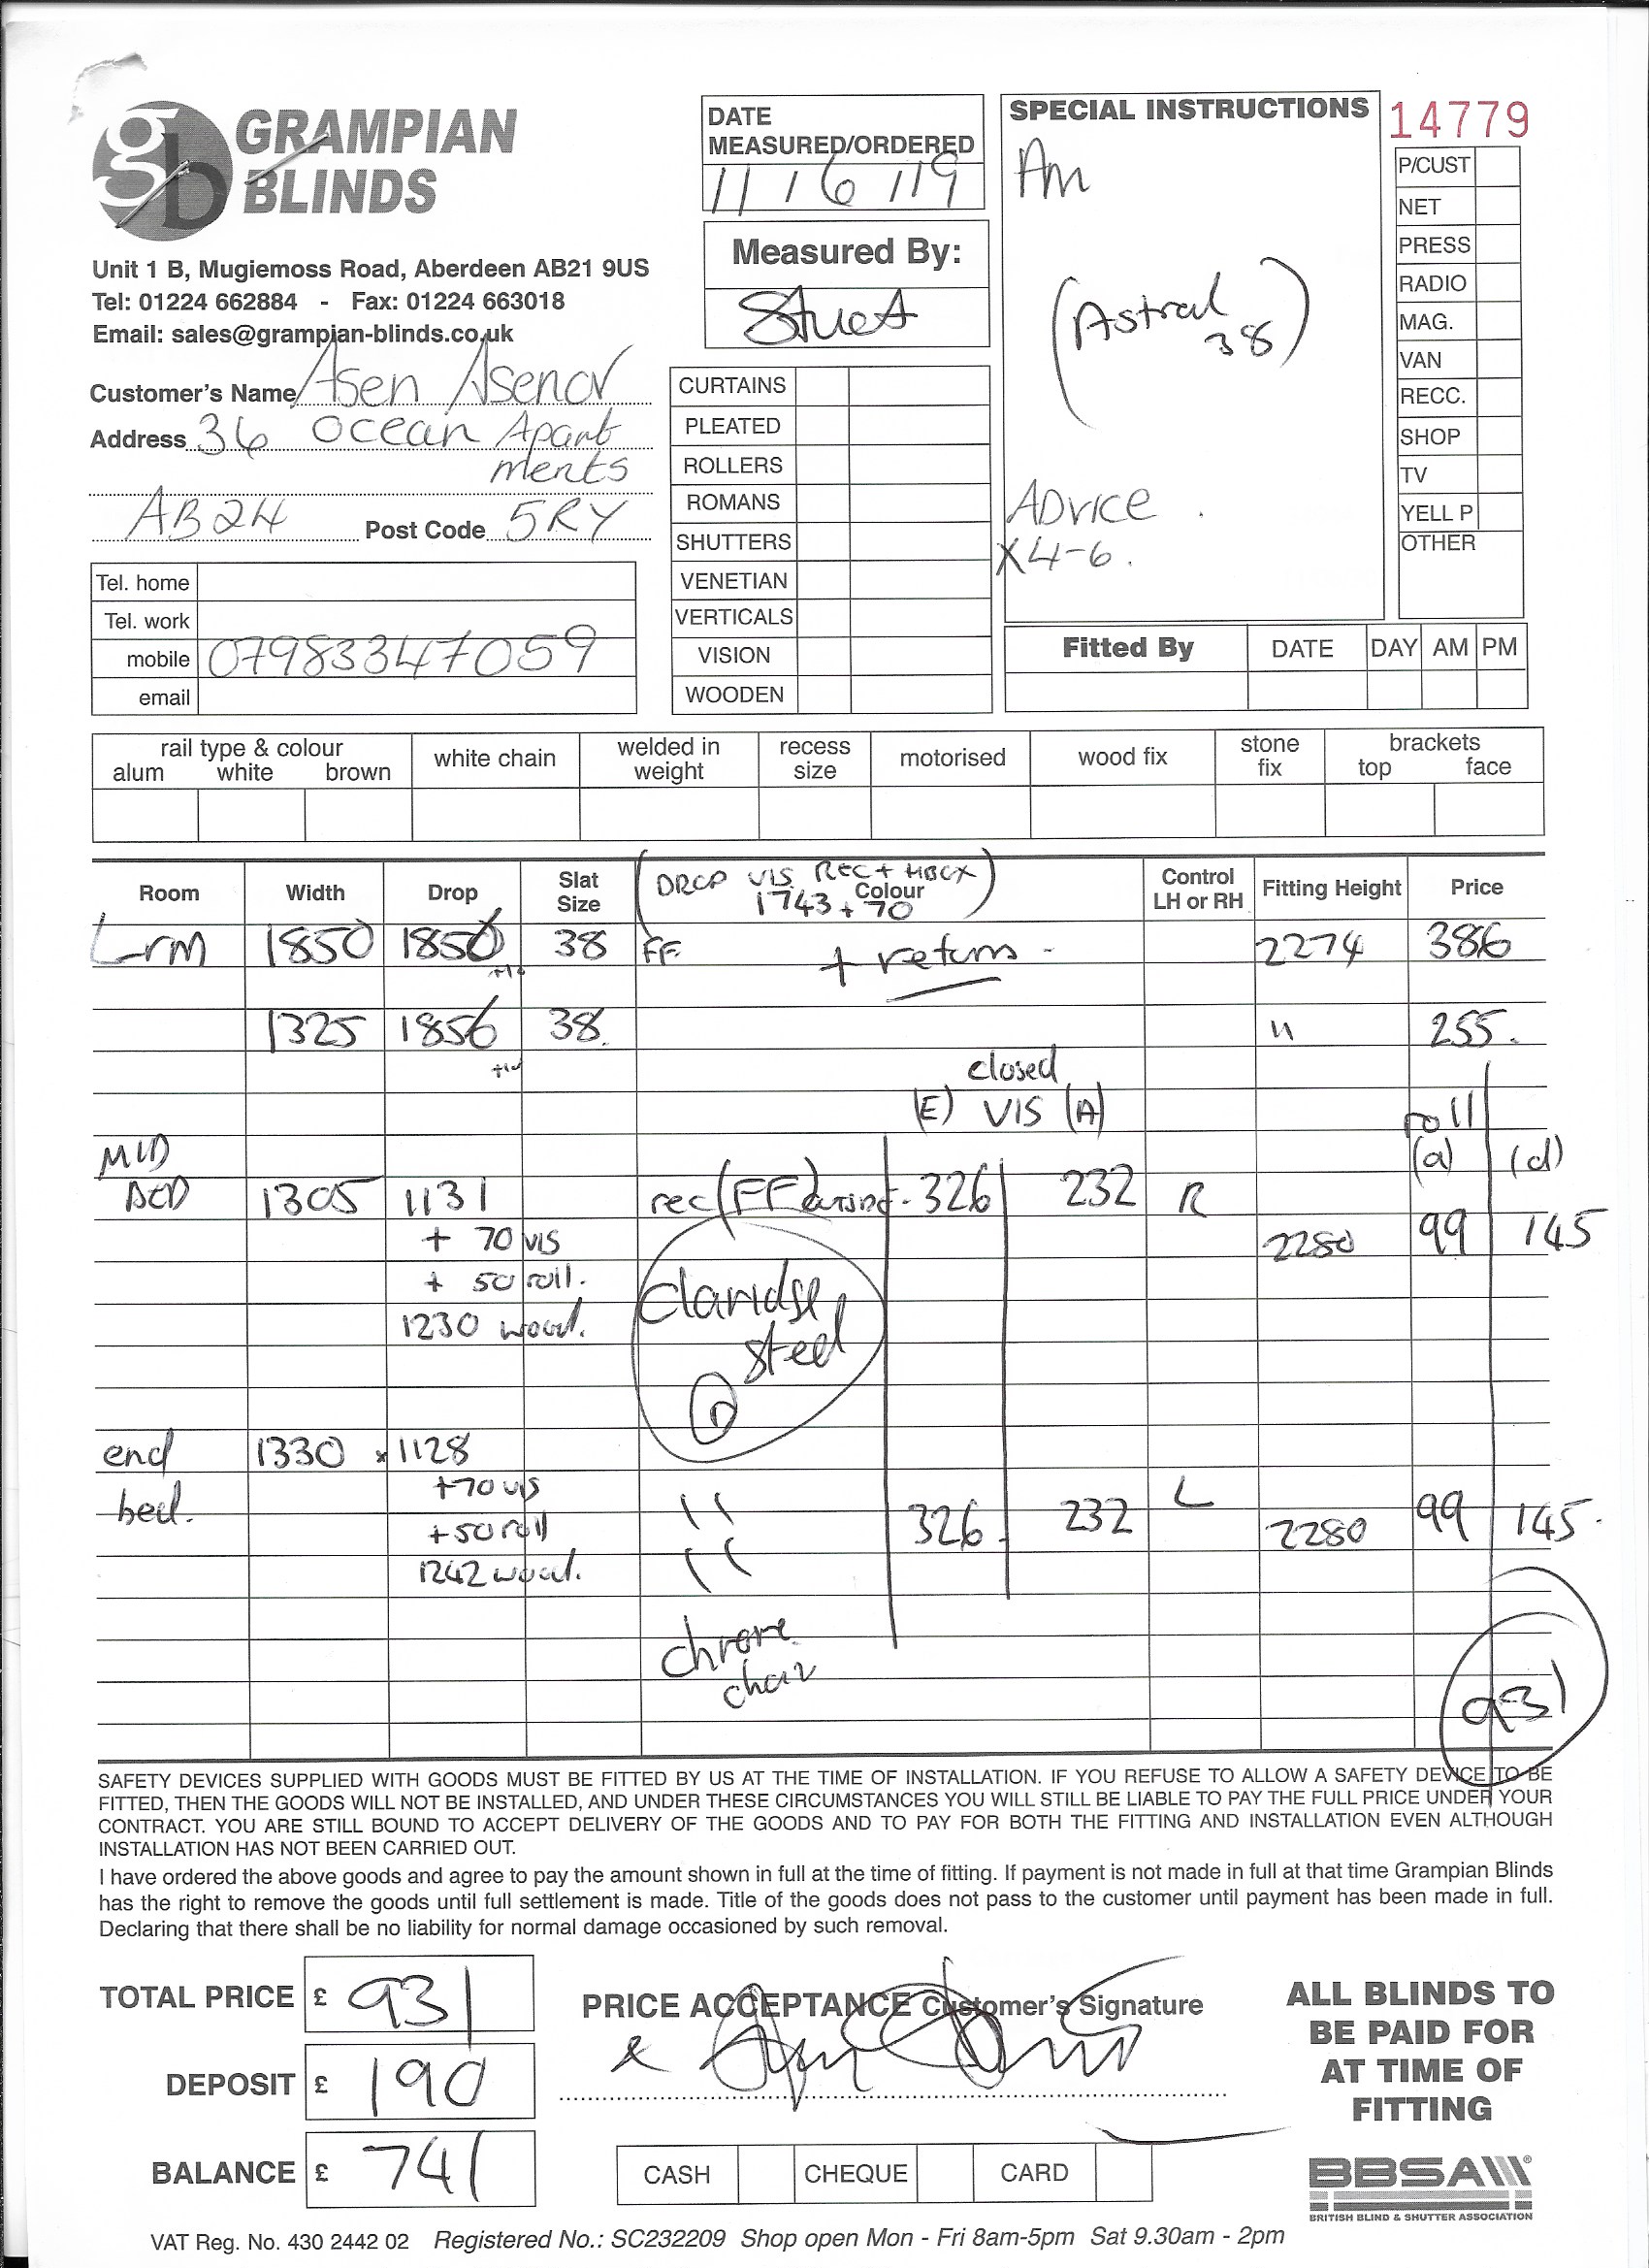 GRAMPIAN
BLINDS
Unit 1 B, Mugiemoss Road, Aberdeen AB21 9US
Tel: 01224 662884 - Fax: 01224 663018
Email: sales@grampian-blinds.co.uk
Customer's Name Asen Asenov
Address 36 Ocean Apart
ments
AB24 Post Code 5RY
Tel. home
Tel. work
mobile 07983347059
email
DATE
MEASURED/ORDERED
11/6/19
Measured By:
CURTAINS
PLEATED
ROLLERS
ROMANS
SHUTTERS
VENETIAN
VERTICALS
VISION
WOODEN
SPECIAL INSTRUCTIONS
Am
(Astral
38)
ADVICE.
X4-6.
14779
P/CUST
NET
PRESS
RADIO
MAG.
VAN
RECC.
SHOP
TV
YELL P
OTHER
Fitted By DATE DAY AM PM
rail type & colour white chain welded in weight recess size motorised wood fix stone fix brackets
alum white brown top face
(DROP VIS REC + HBOX)
1743 + 70
Room Width Drop Slat Size Colour Control LH or RH Fitting Height Price
L-rm 1850 1856 38 FF. + return - 2274 386
1325 1856 38. " 255.
closed
(E) VIS (A) roll
MID (a) (d)
BED 1305 1131 rec (FF) 326 232 R
+ 70 vis 2280 99 145
+ 50 roll.
1230 wood.
Claridge
steel
D
end 1330 x 1128
+70 vis
bed. " 326. 232 L 2280 99 145.
+50 roll
1242 wood. "
chrome
chain
931
SAFETY DEVICES SUPPLIED WITH GOODS MUST BE FITTED BY US AT THE TIME OF INSTALLATION. IF YOU REFUSE TO ALLOW A SAFETY DEVICE TO BE
FITTED, THEN THE GOODS WILL NOT BE INSTALLED, AND UNDER THESE CIRCUMSTANCES YOU WILL STILL BE LIABLE TO PAY THE FULL PRICE UNDER YOUR
CONTRACT. YOU ARE STILL BOUND TO ACCEPT DELIVERY OF THE GOODS AND TO PAY FOR BOTH THE FITTING AND INSTALLATION EVEN ALTHOUGH
INSTALLATION HAS NOT BEEN CARRIED OUT.
I have ordered the above goods and agree to pay the amount shown in full at the time of fitting. If payment is not made in full at that time Grampian Blinds
has the right to remove the goods until full settlement is made. Title of the goods does not pass to the customer until payment has been made in full.
Declaring that there shall be no liability for normal damage occasioned by such removal.
TOTAL PRICE £ 931
DEPOSIT £ 190
BALANCE £ 741
PRICE ACCEPTANCE Customer's Signature
x
CASH CHEQUE CARD
ALL BLINDS TO
BE PAID FOR
AT TIME OF
FITTING
BBSA
BRITISH BLIND & SHUTTER ASSOCIATION
VAT Reg. No. 430 2442 02 Registered No.: SC232209 Shop open Mon - Fri 8am-5pm Sat 9.30am - 2pm